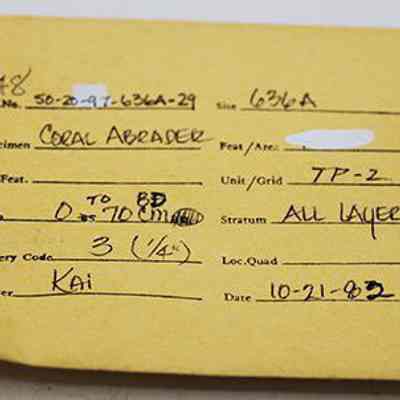 #8
No. 50-20-97-636A-29 Site 636A
cimen CORAL ABRADER Feat/Area:
Feat. Unit/Grid TP-2
0 TO 70 cm BD Stratum ALL LAYER
ery Code 3 (1/4") Loc.Quad
er Kai Date 10-21-82